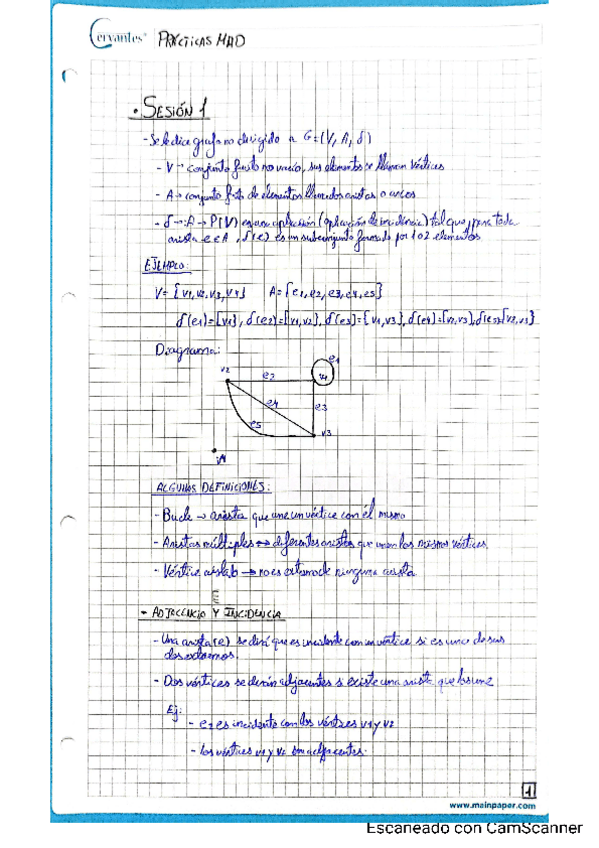 Cervantes PRÁCTICAS MAD
• SESIÓN 1
- Se le dice grafo no dirigido a G=(V, A, δ)
- V → conjunto finito no vacío, sus elementos se llaman vértices
- A → conjunto finito de elementos llamados aristas o arcos
- δ → A → P(V) es una aplicación (aplicación de incidencia) tal que, para toda
arista e∈A, δ(e) es un subconjunto formado por 1 o 2 elementos
EJEMPLO:
V= {v1,v2,v3,v4} A= {e1,e2,e3,e4,e5}
δ(e1)={v1}, δ(e2)={v1,v2}, δ(e3)={v1,v3}, δ(e4)={v2,v3}, δ(e5)={v2,v3}
Diagrama:
e1
v2 e2 v1
e4 e3
e5 v3
v4
ALGUNAS DEFINICIONES:
- Bucle → arista que une un vértice con él mismo
- Aristas múltiples → diferentes aristas que unen los mismos vértices
- Vértice aislado → no es extremo de ninguna arista
- ADJACENCIA Y INCIDENCIA
- Una arista (e) se dirá que es incidente con un vértice si es uno de sus
dos extremos.
- Dos vértices se dirán adjacentes si existe una arista que los une
Ej:
- e2 es incidente con los vértices v1 y v2
- los vértices v1 y v2 son adjacentes.
1
www.mainpaper.com
Escaneado con CamScanner